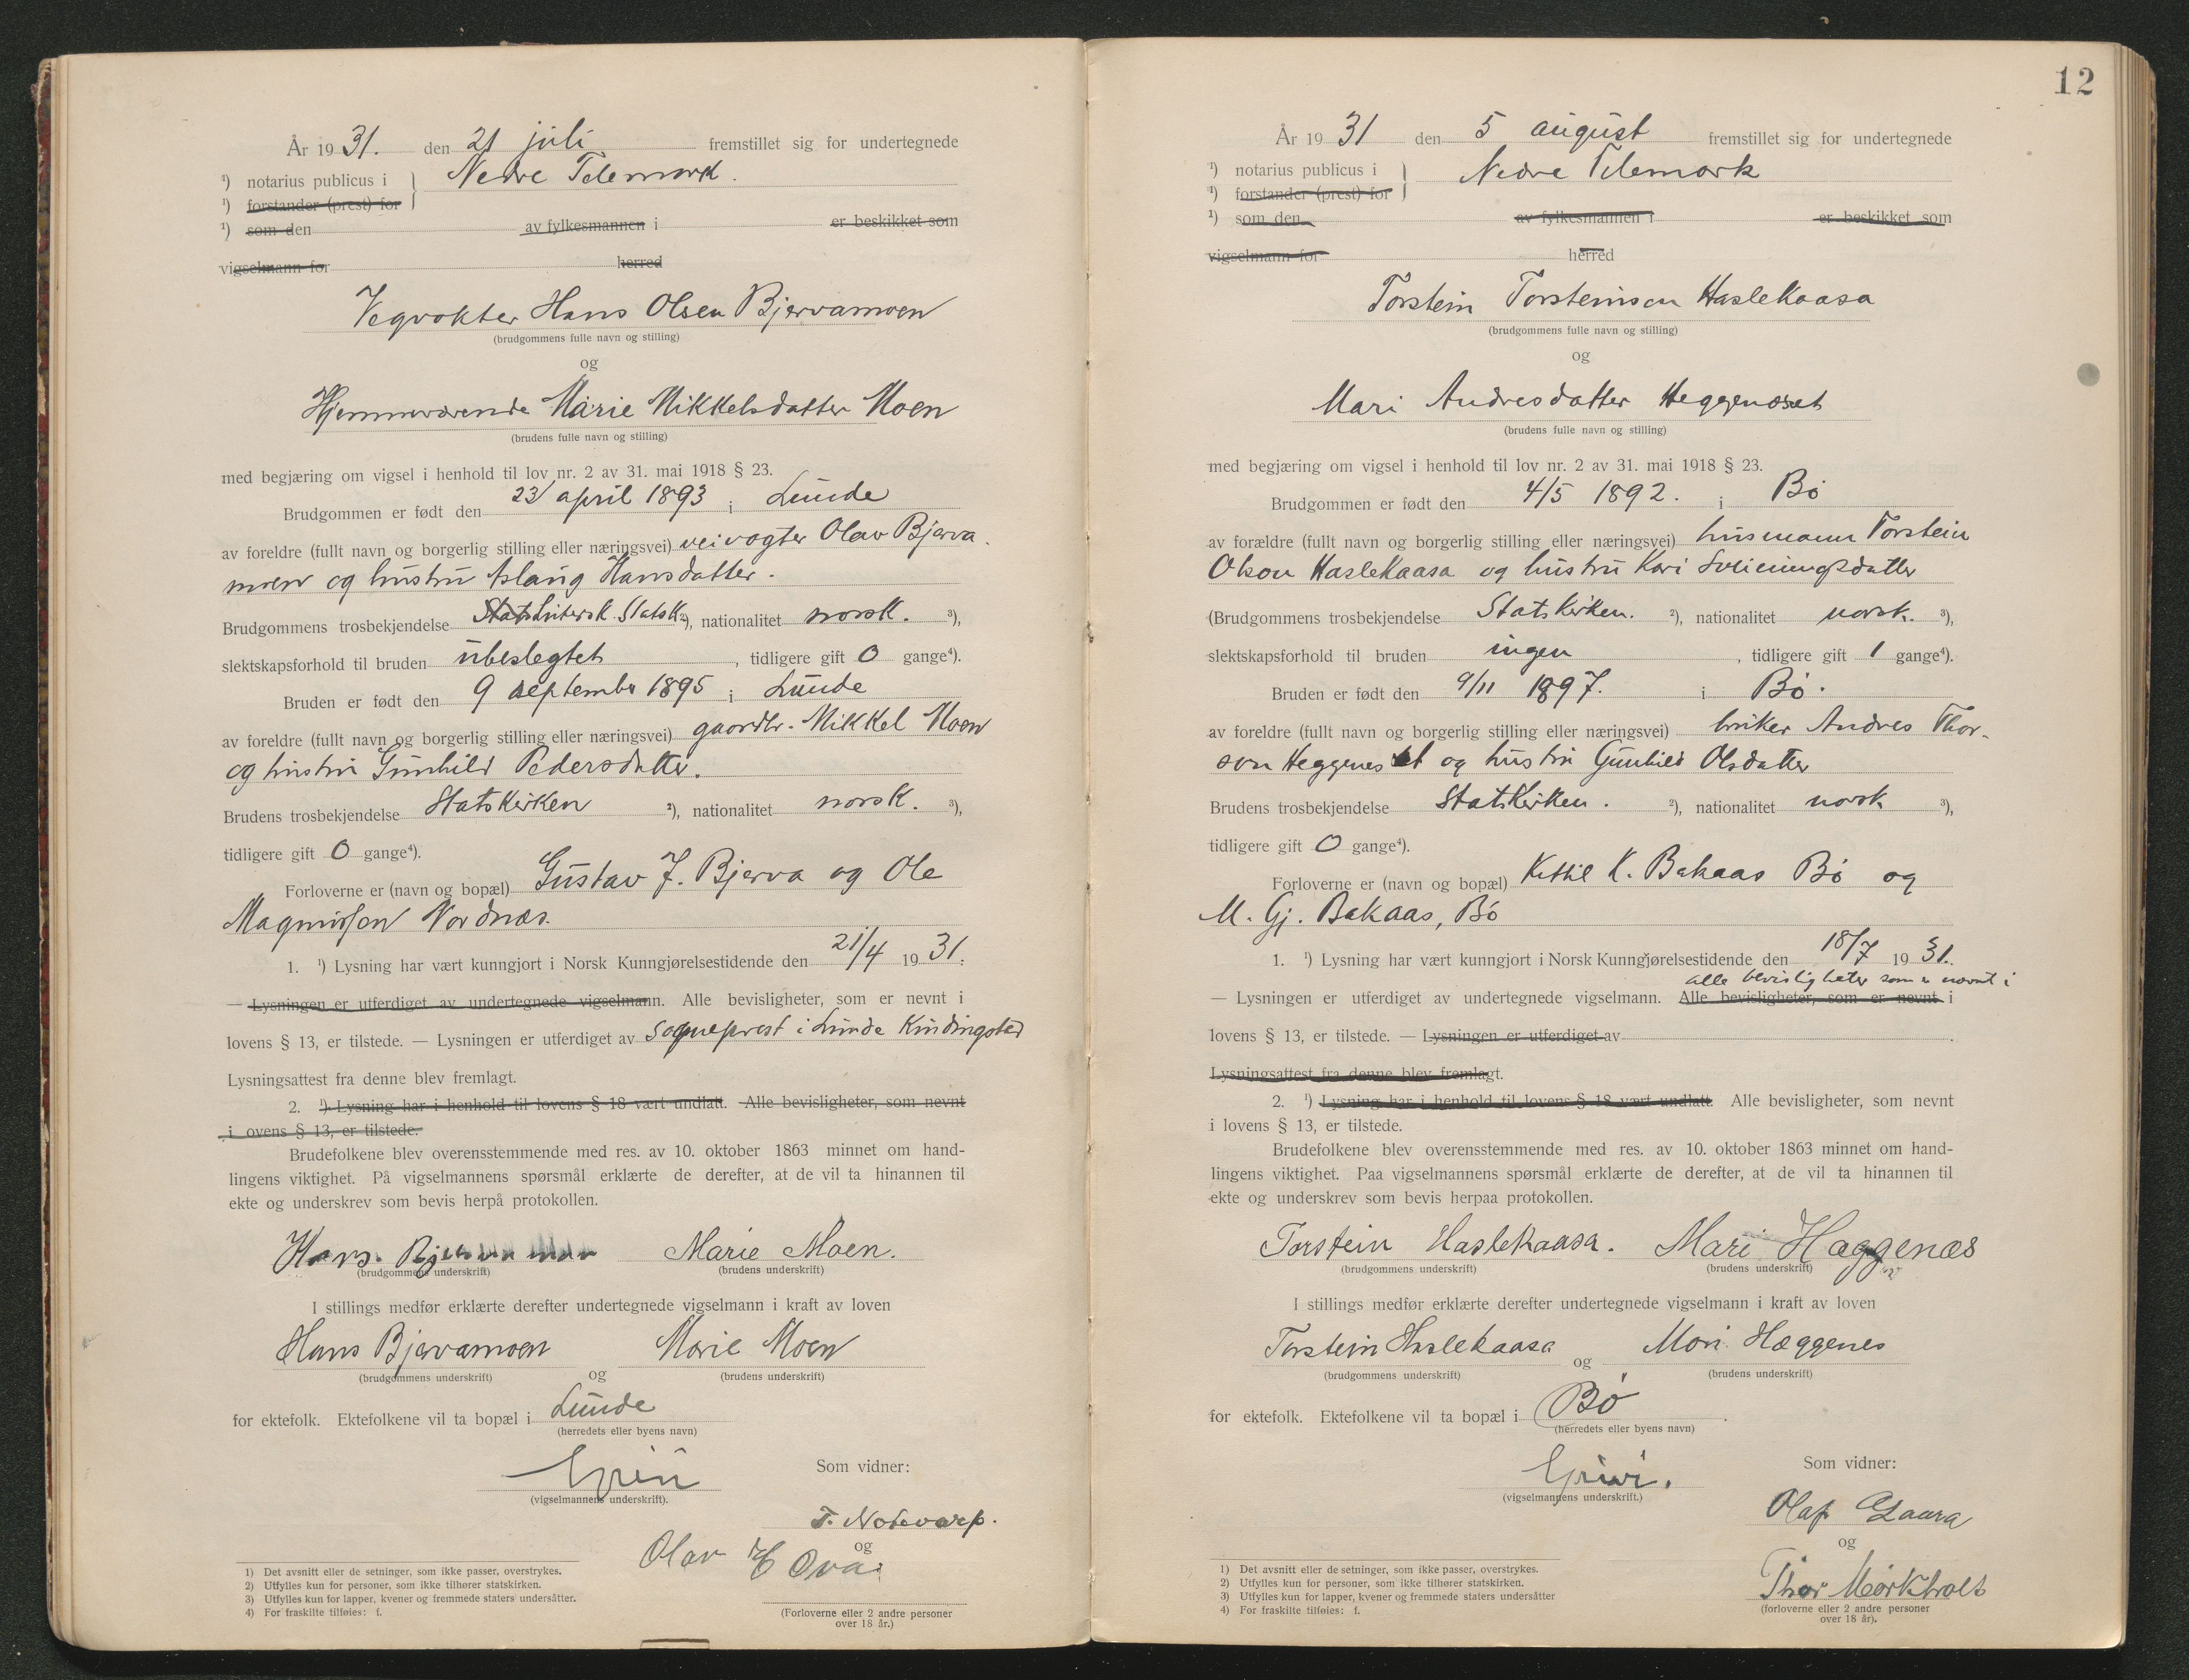 År 1931. den 21 juli fremstillet sig for undertegnede
¹) notarius publicus i } Nedre Telemark.
¹) forstander (prest) for
¹) som den av fylkesmannen i er beskikket som
vigselmann for herred
Vegvokter Hans Olsen Bjervamoen
(brudgommens fulle navn og stilling)
og
Hjemmeværende Marie Mikkelsdatter Moen
(brudens fulle navn og stilling)
med begjæring om vigsel i henhold til lov nr. 2 av 31. mai 1918 § 23.
Brudgommen er født den 23/ april 1893 i Lunde
av foreldre (fullt navn og borgerlig stilling eller næringsvei) veivogter Olav Bjerva
moen og hustru Aslaug Hansdatter.
Brudgommens trosbekjendelse Statsk ²), nationalitet norsk. ³),
slektskapsforhold til bruden ubeslegtet, tidligere gift 0 gange⁴).
Bruden er født den 9 september 1895 i Lunde
av foreldre (fullt navn og borgerlig stilling eller næringsvei) gaardbr. Mikkel Moen
og hustru Gunhild Pedersdatter.
Brudens trosbekjendelse Statskirken ²), nationalitet norsk. ³),
tidligere gift 0 gange⁴).
Forloverne er (navn og bopæl) Gustav J. Bjerva og Ole
Magnussen Nordnæs.
1. ¹) Lysning har vært kunngjort i Norsk Kunngjørelsestidende den 21/4 1931.
— Lysningen er utferdiget av undertegnede vigselmann. Alle bevisligheter, som er nevnt i
lovens § 13, er tilstede. — Lysningen er utferdiget av sogneprest i Lunde Kindingstad
Lysningsattest fra denne blev fremlagt.
2. ¹) Lysning har i henhold til lovens § 18 vært undlatt. Alle bevisligheter, som nevnt
i ovens § 13, er tilstede.
Brudefolkene blev overensstemmende med res. av 10. oktober 1863 minnet om hand-
lingens viktighet. På vigselmannens spørsmål erklærte de derefter, at de vil ta hinannen til
ekte og underskrev som bevis herpå protokollen.
Hans Marie Moen.
(brudgommens underskrift) (brudens underskrift)
I stillings medfør erklærte derefter undertegnede vigselmann i kraft av loven
Hans Bjervamoen Marie Moen
(brudgommens underskrift) og (brudens underskrift)
for ektefolk. Ektefolkene vil ta bopæl i Lunde
(herredets eller byens navn)
Som vidner:
(vigselmannens underskrift).
og
(Forloverne eller 2 andre personer
over 18 år.)
1) Det avsnitt eller de setninger, som ikke passer, overstrykes.
2) Utfylles kun for personer, som ikke tilhører statskirken.
3) Utfylles kun for lapper, kvener og fremmede staters undersåtter.
4) For fraskilte tilføies: f.
12
År 1931 den 5 august fremstillet sig for undertegnede
¹) notarius publicus i } Nedre Telemark
¹) forstander (prest) for
¹) som den av fylkesmannen i er beskikket som
vigselmann for herred
Torstein Torsteinson Haslekaasa
(brudgommens fulle navn og stilling)
og
Mari Andresdatter Heggeneset
(brudens fulle navn og stilling)
med begjæring om vigsel i henhold til lov nr. 2 av 31. mai 1918 § 23.
Brudgommen er født den 4/5 1892. i Bø
av forældre (fullt navn og borgerlig stilling eller næringsvei) husmann Torstein
Olson Haslekaasa og hustru Kari Sveinungsdatter
(Brudgommens trosbekjendelse Statskirken. ²), nationalitet norsk. ³),
slektskapsforhold til bruden ingen, tidligere gift 1 gange⁴).
Bruden er født den 9/11 1897. i Bø.
av foreldre (fullt navn og borgerlig stilling eller næringsvei) bruker Andres Thor-
son Heggeneset og hustru Gunhild Olsdatter
Brudens trosbekjendelse Statskirken. ²), nationalitet norsk ³),
tidligere gift 0 gange⁴).
Forloverne er (navn og bopæl) Kittil K. Bakaas Bø og
M. Gj. Bakaas, Bø
1. ¹) Lysning har vært kunngjort i Norsk Kunngjørelsestidende den 18/7 1931.
alle bevisligheter som er nevnt i
— Lysningen er utferdiget av undertegnede vigselmann. Alle bevisligheter, som er nevnt i
lovens § 13, er tilstede. — Lysningen er utferdiget av
Lysningsattest fra denne blev fremlagt.
2. ¹) Lysning har i henhold til lovens § 18 vært undlatt. Alle bevisligheter, som nevnt
i lovens § 13, er tilstede.
Brudefolkene blev overensstemmende med res. av 10. oktober 1863 minnet om hand-
lingens viktighet. Paa vigselmannens spørsmål erklærte de derefter, at de vil ta hinannen til
ekte og underskrev som bevis herpaa protokollen.
Torstein Haslekaasa. Mari Hæggenæs
(brudgommens underskrift) (brudens underskrift)
I stillings medfør erklærte derefter undertegnede vigselmann i kraft av loven
Torstein Haslekaasa og Mari Hæggenes
(brudgommens underskrift) (brudens underskrift)
for ektefolk. Ektefolkene vil ta bopæl i Bø.
(herredets eller byens navn)
Som vidner:
(vigselmannens underskrift.)
Olaf Gaara
og
Thor Mørkholt
(forloverne eller 2 andre personer
over 18 år).
1) Det avsnitt eller de setninger, som ikke passer, overstrykes.
2) Utfylles kun for personer, som ikke tilhører statskirken.
3) Utfylles kun for lapper, kvener og fremmede staters undersåtter
4) For fraskilte tilføies: f.